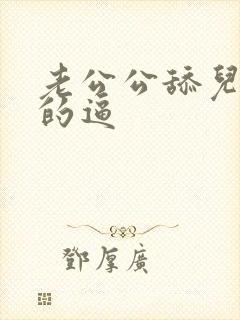 老公公舔兒
的逼
鄧厚廣